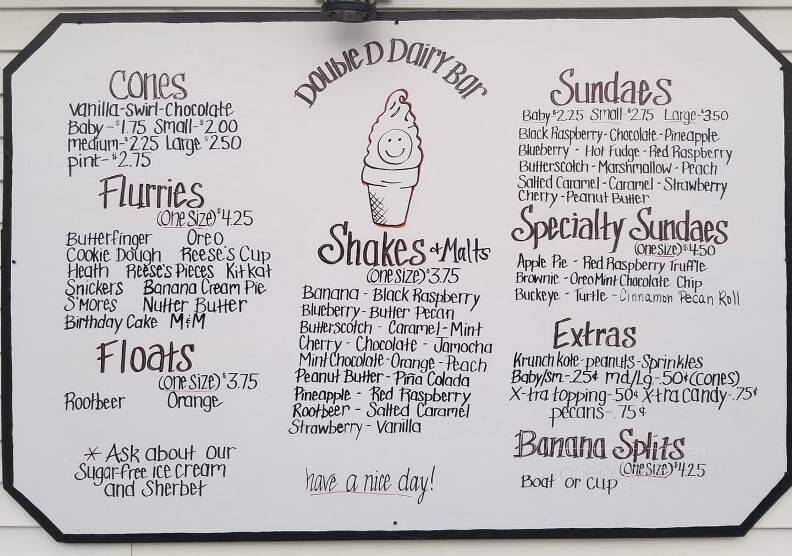 Double D Dairy Bar
Cones
Vanilla-Swirl-Chocolate
Baby-$1.75 Small-$2.00
medium-$2.25 Large $2.50
pint-$2.75
Flurries
(One Size) $4.25
Butterfinger Oreo
Cookie Dough Reese's Cup
Heath Reese's Pieces Kitkat
Snickers Banana Cream Pie
S'mores Nutter Butter
Birthday Cake M&M
Floats
(One Size) $3.75
Rootbeer Orange
* Ask about our
Sugar-free ice cream
and Sherbet
Shakes & Malts
(One Size) $3.75
Banana - Black Raspberry
Blueberry - Butter Pecan
Butterscotch - Caramel - Mint
Cherry - Chocolate - Jamocha
Mint Chocolate - Orange - Peach
Peanut Butter - Piña Colada
Pineapple - Red Raspberry
Rootbeer - Salted Caramel
Strawberry - Vanilla
have a nice day!
Sundaes
Baby $2.25 Small-$2.75 Large-$3.50
Black Raspberry - Chocolate - Pineapple
Blueberry - Hot Fudge - Red Raspberry
Butterscotch - Marshmallow - Peach
Salted Caramel - Caramel - Strawberry
Cherry - Peanut Butter
Specialty Sundaes
(One Size) $4.50
Apple Pie - Red Raspberry Truffle
Brownie - Oreo Mint Chocolate Chip
Buckeye - Turtle - Cinnamon Pecan Roll
Extras
Krunch kote - peanuts - Sprinkles
Baby/sm-.25¢ md/Lg-.50¢ (cones)
X-tra topping-.50¢ X-tra candy-.75¢
pecans-.75¢
Banana Splits
(One Size) $4.25
Boat or Cup